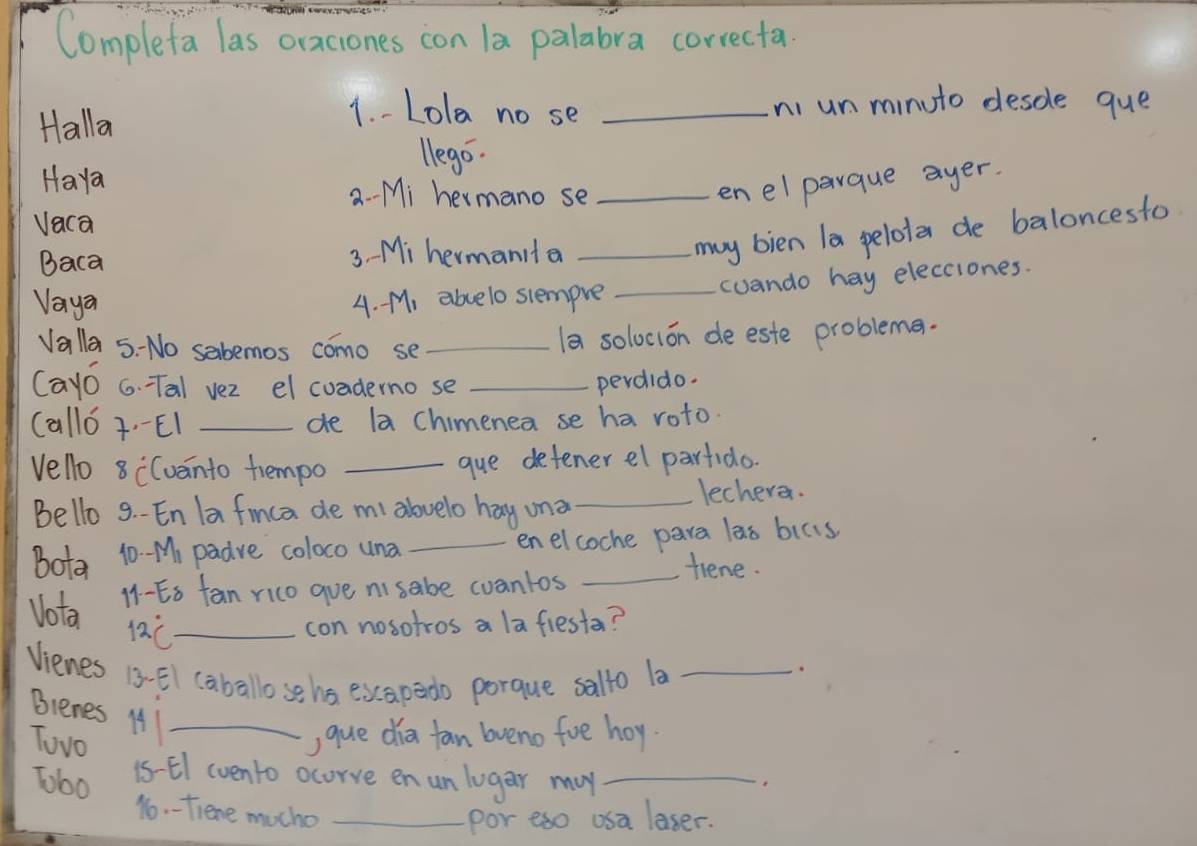 Completa las oraciones con la palabra correcta.
Halla
Haya
Vaca
Baca
Vaya
Valla
Cayó
Calló
Vello
Bello
Bota
Vota
Vienes
Bienes
Tuvo
Tubo
1.- Lola no se ________ ni un minuto desde que
llegó.
2.- Mi hermano se ________ en el parque ayer.
3.- Mi hermanita ________ muy bien la pelota de baloncesto
4.- Mi abuelo siempre ________ cuando hay elecciones.
5.- No sabemos cómo se ________ la solución de este problema.
6.- Tal vez el cuaderno se ________ perdido.
7.- El ________ de la chimenea se ha roto.
8 ¿Cuánto tiempo ________ que detener el partido.
9.- En la finca de mi abuelo hay una ________ lechera.
10.- Mi padre coloco una ________ en el coche para las bicis
11- Es tan rico que ni sabe cuantos ________ tiene.
12 ¿________ con nosotros a la fiesta?
13- El caballo se ha escapado porque salto la ________.
14 ¡________, que día tan bueno fue hoy.
15- El cuento ocurre en un lugar muy ________.
16.- Tiene mucho ________ por eso usa laser.